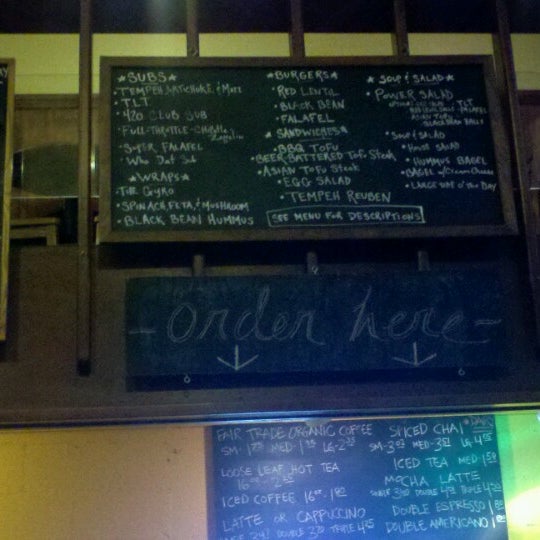 ★SUBS★
TEMPEH, ARTICHOKE, & MOZZ
• TLT
• 420 CLUB SUB
FULL-THROTTLE-CHIPOTLE
• SUPER FALAFEL
• WHO DAT SUB
★WRAPS★
TLT GYRO
• SPINACH, FETA, & MUSHROOM
• BLACK BEAN HUMMUS
★BURGERS★
RED LENTIL
• BLACK BEAN
• FALAFEL
★SANDWICHES★
• BBQ TOFU
• BEER BATTERED TOFU STEAK
• ASIAN TOFU STEAK
• EGG SALAD
• TEMPEH REUBEN
SEE MENU FOR DESCRIPTIONS
★SOUP & SALAD★
• POWER SALAD
TLT
FALAFEL
ASIAN TOFU
BLACK BEAN PATTY
• SOUP & SALAD
• HOUSE SALAD
• HUMMUS BAGEL
• BAGEL w/CREAM CHEESE
• LARGE SOUP OF THE DAY
- order here -
FAIR TRADE ORGANIC COFFEE
LOOSE LEAF HOT TEA
ICED COFFEE 16oz
LATTE OR CAPPUCCINO
SPICED CHAI
ICED TEA MED
MOCHA LATTE
DOUBLE ESPRESSO
DOUBLE AMERICANO